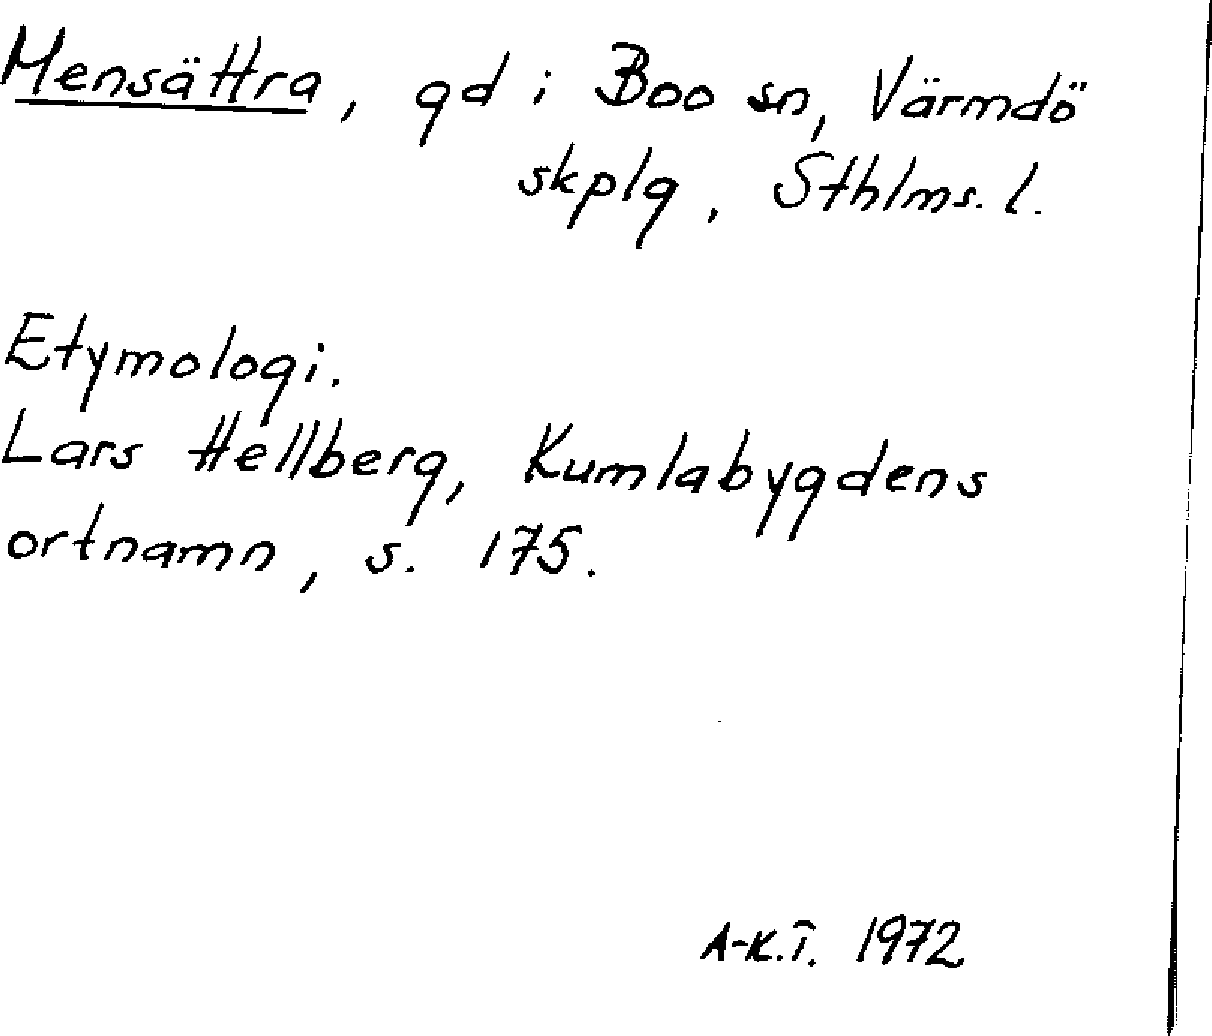 Mensättra, gd i Boo sn, Värmdö
skplg, Sthlms. l.
Etymologi.
Lars Hellberg, Kumlabygdens
ortnamn, s. 175.
A-K.T. 1972